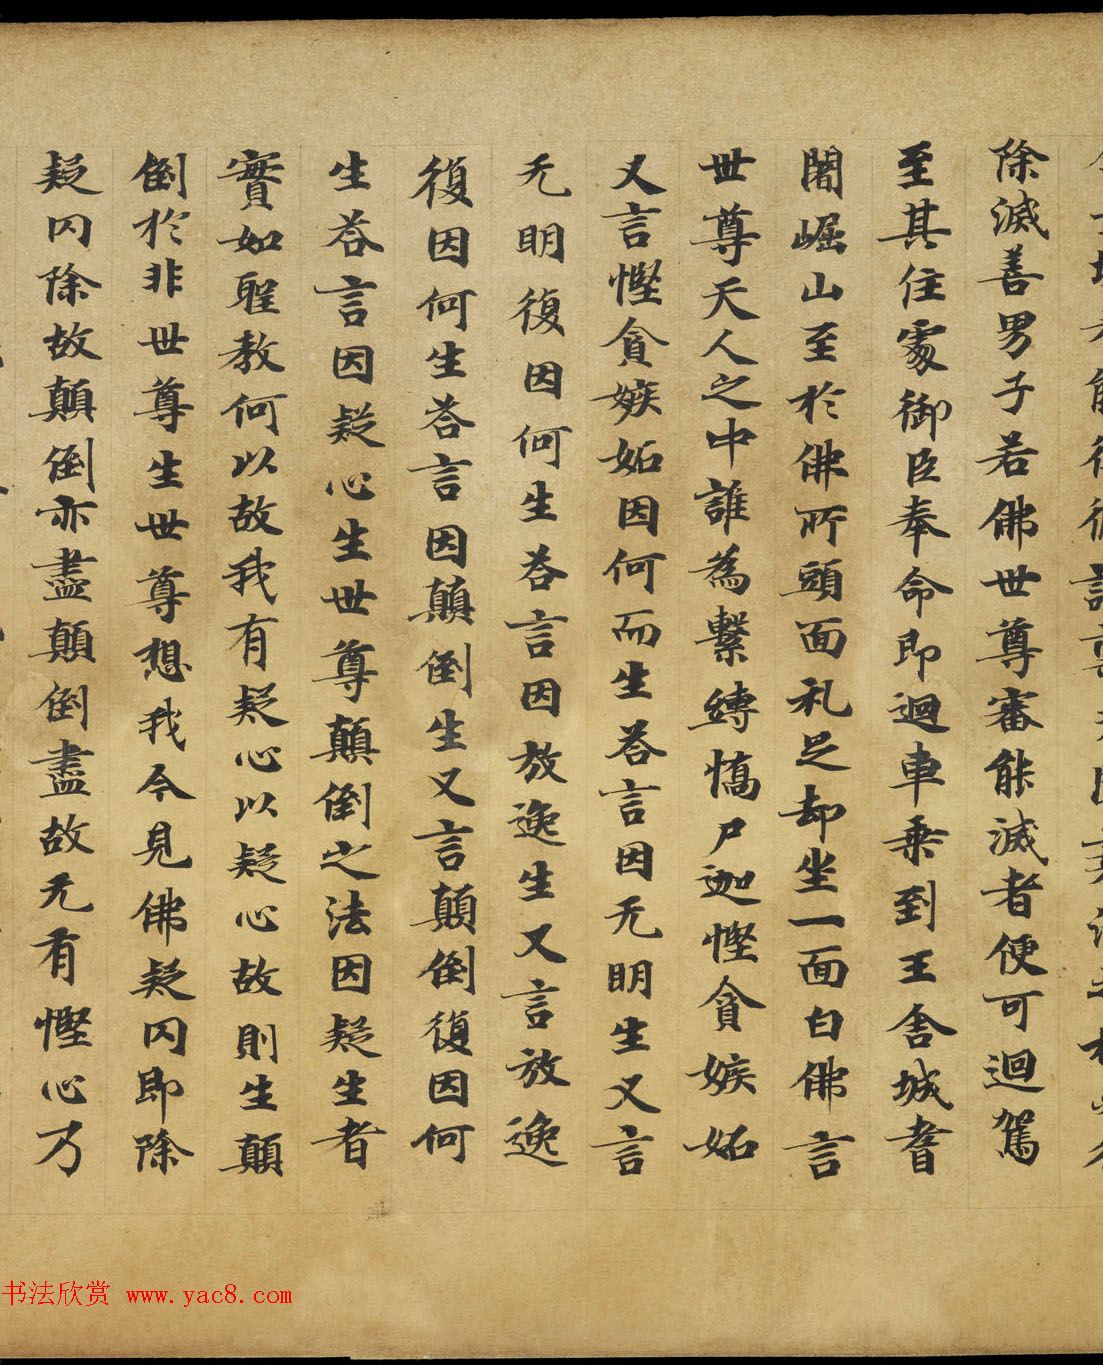 除滅善男子若佛世尊審能滅者便可迴駕
至其住處御臣奉命即迴車乘到王舍城耆
闍崛山至於佛所頭面礼足却坐一面白佛言
世尊天人之中誰為繫縛憍尸迦慳貪嫉妬
又言慳貪嫉妬因何而生荅言因无明生又言
无明復因何生荅言因放逸生又言放逸
復因何生荅言因顛倒生又言顛倒復因何
生荅言因疑心生世尊顛倒之法因疑生者
實如聖教何以故我有疑心以疑心故則生顛
倒於非世尊生世尊想我今見佛疑冈即除
疑冈除故顛倒亦盡顛倒盡故无有慳心乃
书法欣赏 www.yac8.com